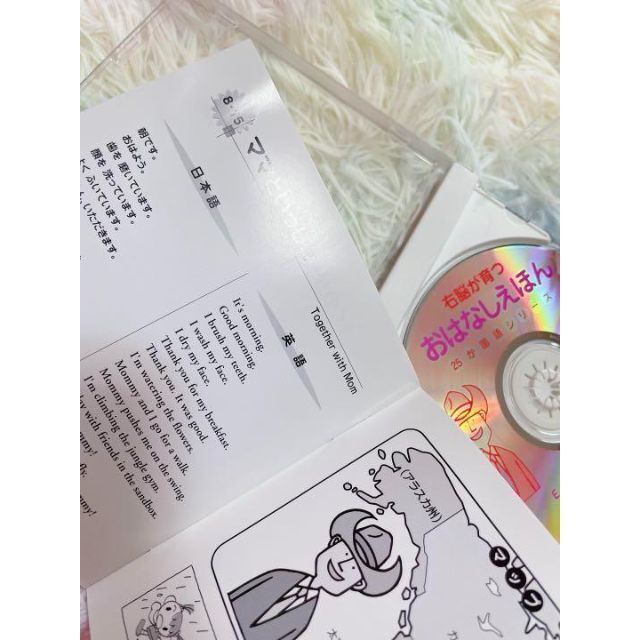 8
5
マ
Together with Mom
日本語
朝です。
おはよう。
歯を 磨いています。
顔を 洗っています。
ふいています。
いただきます。
英語
It's morning.
Good morning.
I brush my teeth.
I wash my face.
I dry my face.
Thank you for my breakfast.
Thank you. It was good.
I'm watering the flowers.
Mommy and I go for a walk.
Mommy pushes me on the swing.
I'm climbing the jungle gym.
with friends in the sandbox.
(アラスカ州)
右脳が育つ
おはなしえほん
25か国語シリーズ